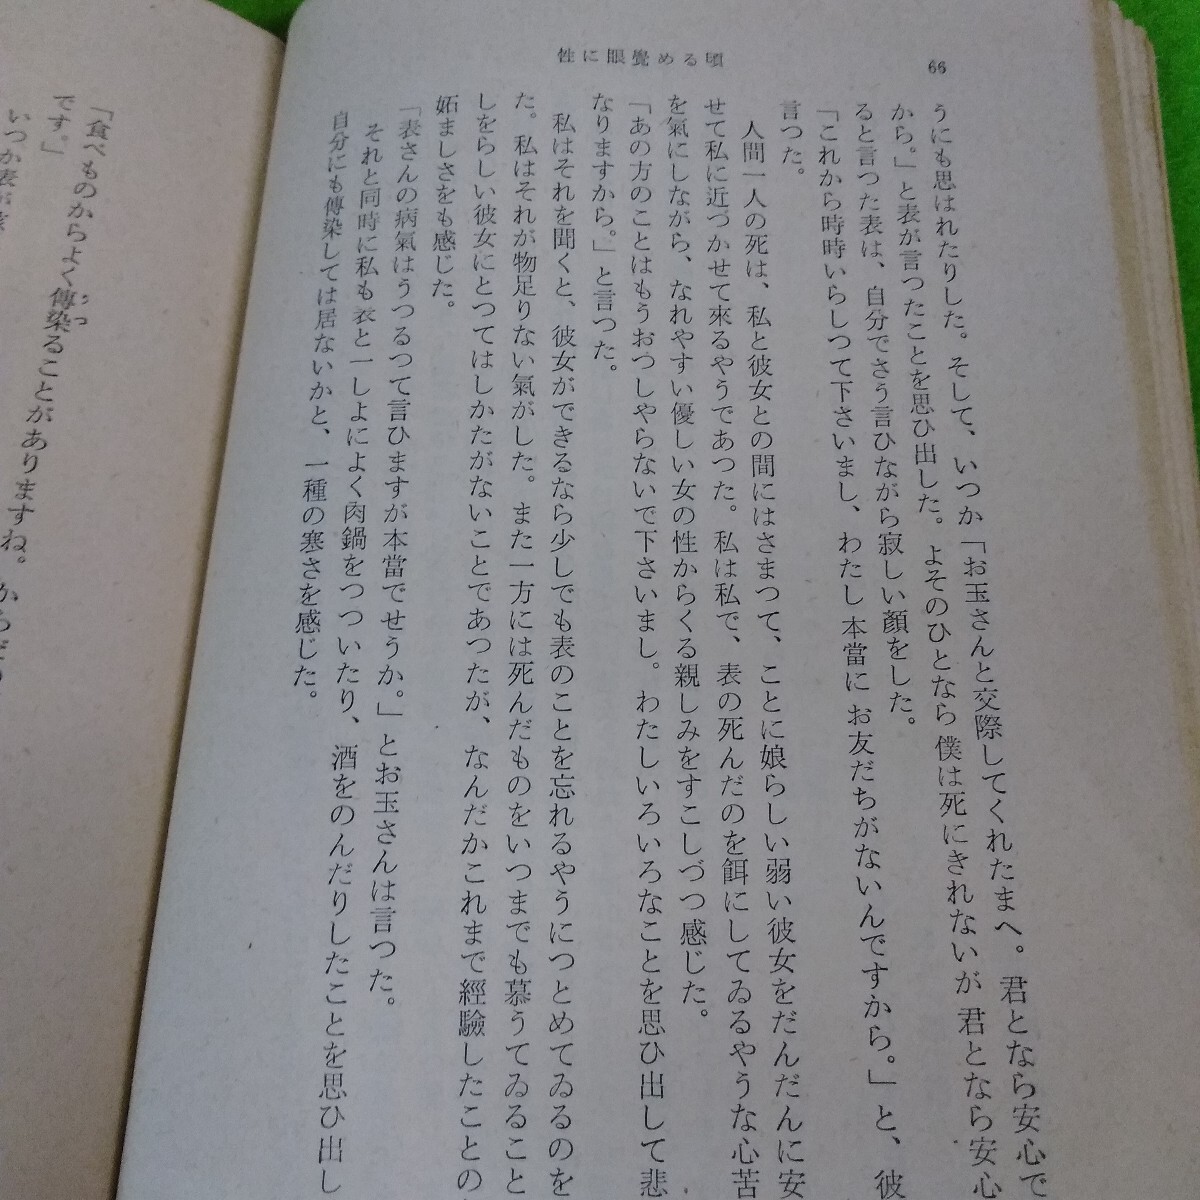 性に眼覺める頃
66
うにも思はれたりした。そして、いつか「お玉さんと交際してくれたまへ。君となら安心で
から。」と表が言つたことを思ひ出した。よそのひとなら僕は死にきれないが君となら安心
ると言つた表は、自分でさう言ひながら寂しい顔をした。
「これから時時いらしつて下さいまし、わたし本當にお友だちがないんですから。」と、彼
言つた。
人間一人の死は、私と彼女との間にはさまつて、ことに娘らしい弱い彼女をだんだんに安
せて私に近づかせて來るやうであつた。私は私で、表の死んだのを餌にしてゐるやうな心苦
を氣にしながら、なれやすい優しい女の性からくる親しみをすこしづつ感じた。
「あの方のことはもうおつしやらないで下さいまし。わたしいろいろなことを思ひ出して悲
なりますから。」と言つた。
私はそれを聞くと、彼女ができるなら少しでも表のことを忘れるやうにつとめてゐるのを
た。私はそれが物足りない氣がした。また一方には死んだものをいつまでも慕うてゐること
しをらしい彼女にとつてはしかたがないことであつたが、なんだかこれまで經驗したことの
妬ましさをも感じた。
「表さんの病氣はうつるつて言ひますが本當でせうか。」とお玉さんは言つた。
それと同時に私も表と一しよによく肉鍋をつついたり、酒をのんだりしたことを思ひ出し
自分にも傳染しては居ないかと、一種の寒さを感じた。
「食べものからよく傳染ることがありますね。からだ
うつ
です。」
いつか表が